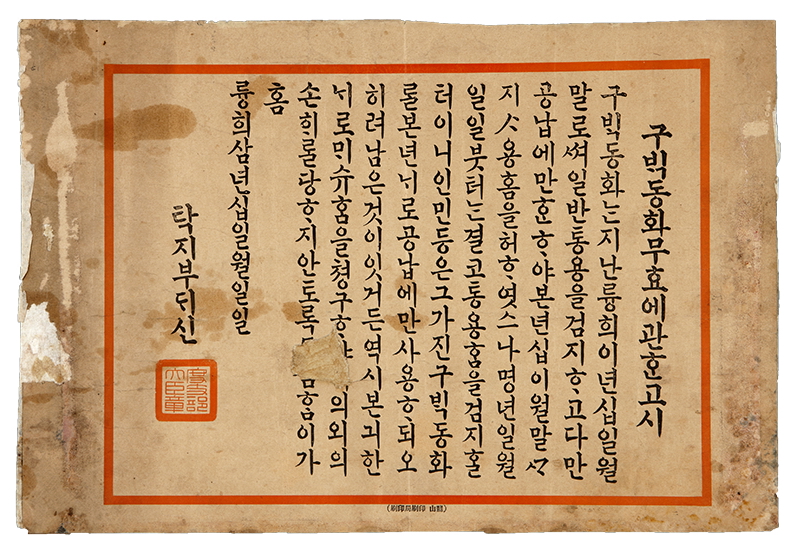 구빅동화무효에관ᄒᆞᆫ고시
구빅동화ᄂᆞᆫ지난륭희이년십일월
말로써일반통용을검지ᄒᆞ고다만
공납에만ᄒᆞᆫᄒᆞ야본년십이월말ᄭᆞ
지ᄉᆞ용홈을허ᄒᆞ엿스나명년일월
일일붓터ᄂᆞᆫ결코통용홈을검지ᄒᆞᆯ
터이니인민등은그가진구빅동화
ᄅᆞᆯ본년ᄂᆡ로공납에만사용ᄒᆞ되오
히려남은것이잇거든역시본긔한
ᄂᆡ로ᄆᆡ슈홈을쳥구ᄒᆞ야의외의
손ᄒᆡᄅᆞᆯ당ᄒᆞ지안토록홈이가
홈
륭희삼년십일월일일
탁지부ᄃᆡ신
度支部大臣章
(龍山印刷局印刷)